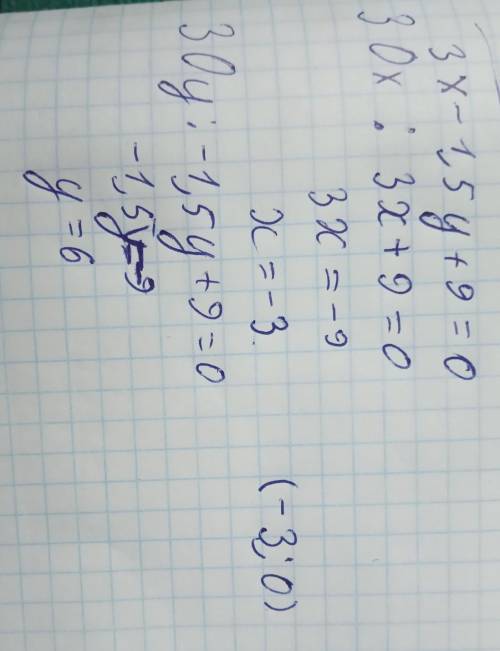 3x - 1,5y + 9 = 0
З Ox : 3x + 9 = 0
3x = -9
x = -3. (-3; 0)
З Oy : -1,5y + 9 = 0
-1,5y = -9
y = 6